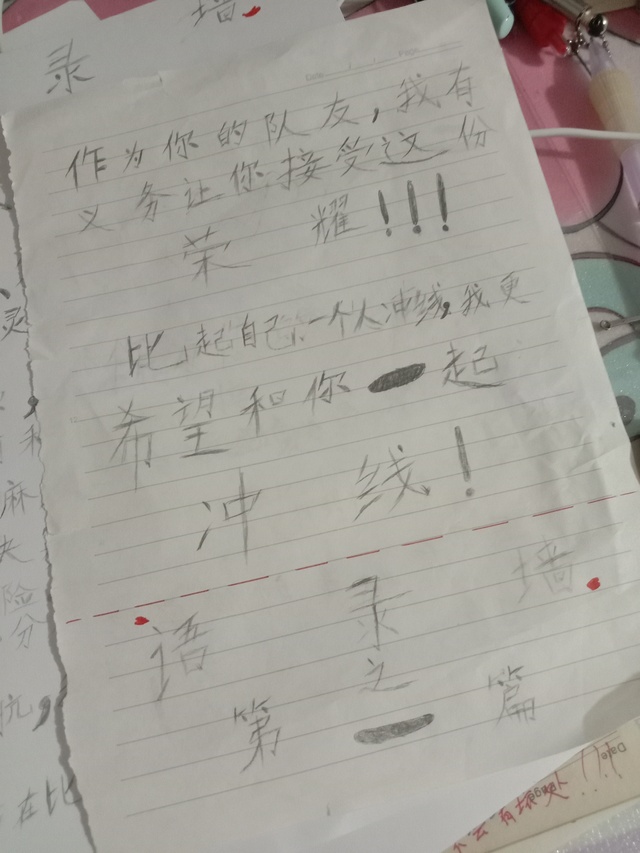 墙
录
作为你的队友,我有
义务让你接受这份
荣耀!!!
比起自己一个人冲线,我更
希望和你一起
冲线!
语录墙
之
第一篇
灵
麻
险
分
抗,
在比
Date